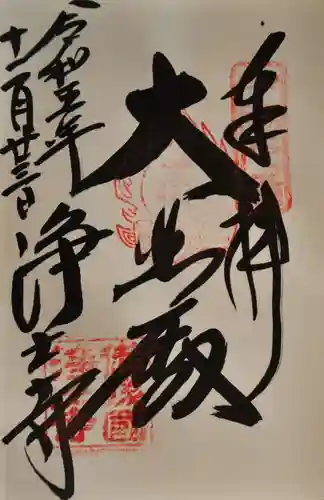 奉拝
大悲殿
浄土寺
令和三年
十一月廿三日